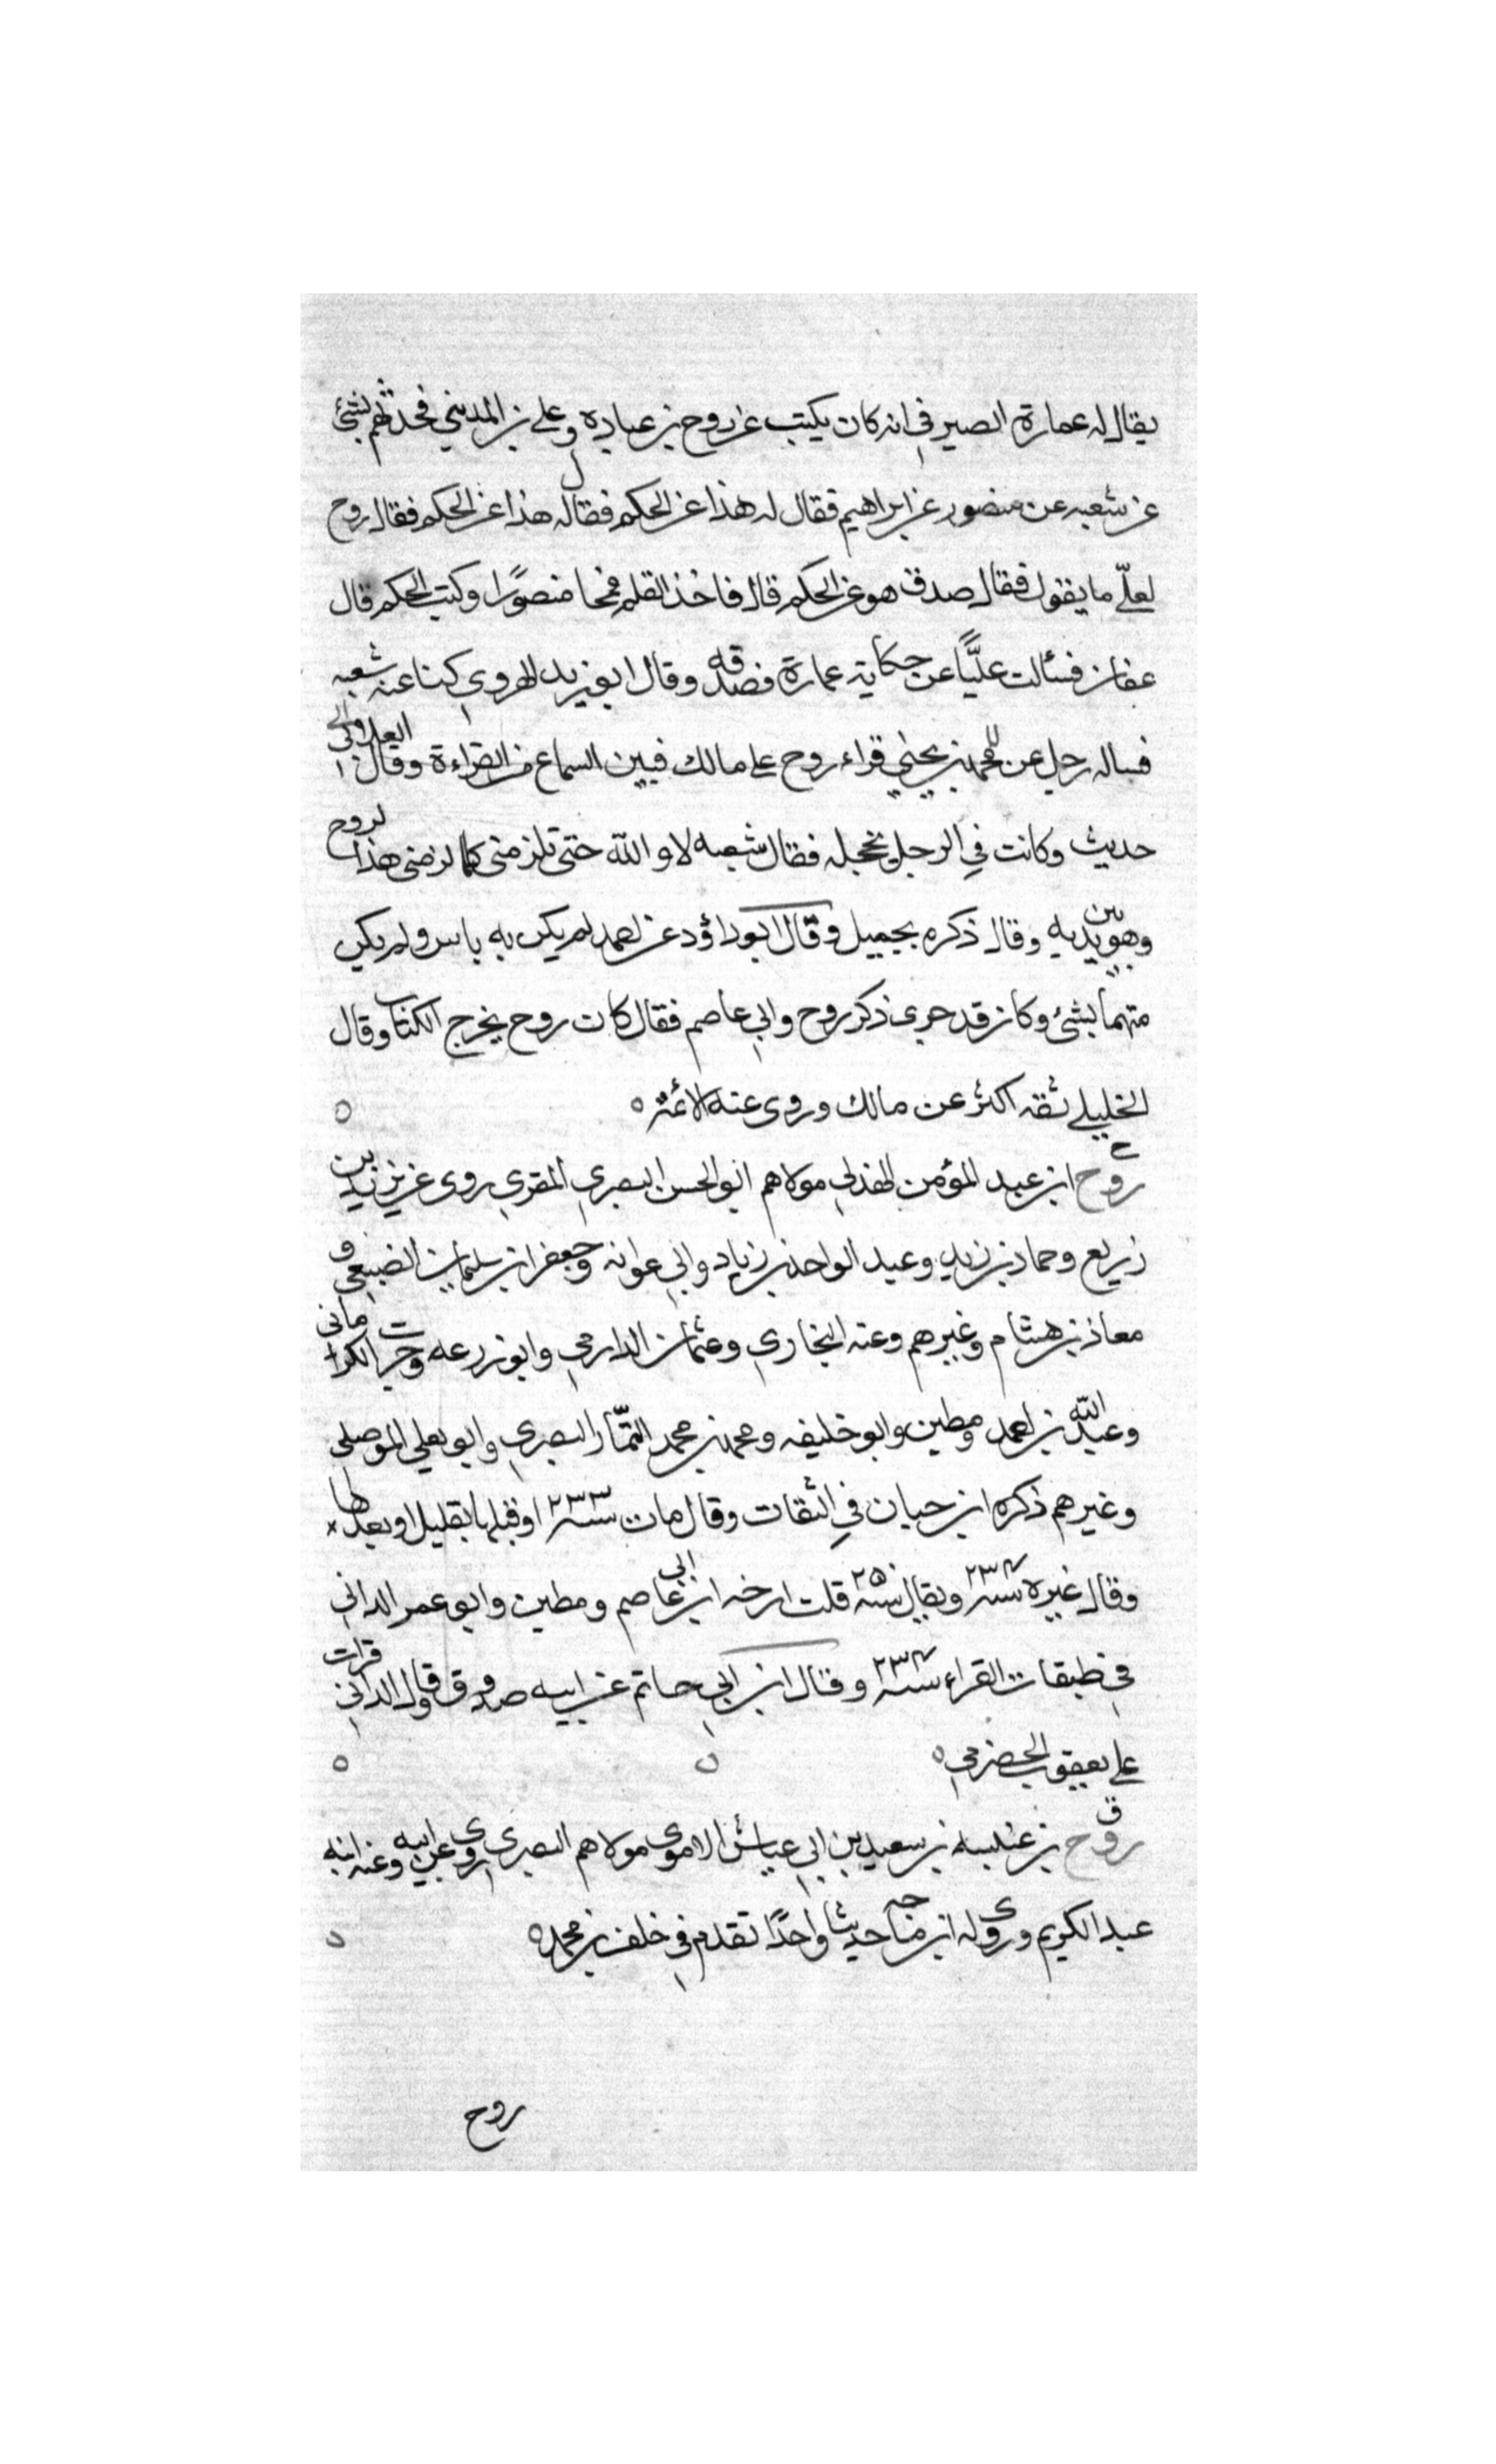 يقال له عمارة الصيرفي انه كان يكتب عن روح بن عباده وعلي بن المديني فحدثهم بشئ
عن شعبه عن منصور عن ابراهيم فقال له هذا عن الحكم فقال له هذا عن الحكم فقال روح
لعلي ما يقول فقال صدق هو عن الحكم قال فاخذ القلم فمحا منصورا وكتب الحكم قال
عفان فسألت عليًّا عن حكاية عمارة فصدقه وقال ابو زيد الهروي كنا عند شعبه
فساله رجل عن محمد بن يحيى قراء روح على مالك فبين السماع من القراءة وقال
حديث وكانت في الرجل عجله فقال شعبه لا والله حتى تلزمني كما لزمني هذا لروح
وهو بين يديه وقال ذكره بجميل وقال ابو داؤد عن احمد لم يكن به باس ولم يكن
متهما بشئ وكان قد جرى ذكر روح وابي عاصم فقال كان روح يخرج الكتاب وقال
الخليلي ثقه اكثر عن مالك وروى عنه الائمة ه
خ روح ابن عبد المؤمن الهذلي مولاهم ابو الحسن البصري المقري روى عن يزيد بن
زريع وحماد بن زيد وعبد الواحد بن زياد وابي عوانه وجعفر ابن سلمان الضبعي و
معاذ بن هشام وغيرهم وعنه البخاري وعثمان الدارمي وابو زرعه وحرب الكرماني
وعبد الله بن احمد ومطين وابو خليفه ومحمد بن محمد التمّار البصري وابو يعلي الموصلي
وغيرهم ذكره ابن حبان في الثقات وقال مات سنة ٢٣٣ او قبلها بقليل او بعدها
وقال غيره سنة ٢٣٤ ويقال سنة ٢٥ قلت ارخه ابن ابي عاصم ومطين وابو عمر الداني
في طبقات القراء سنة ٢٣٤ وقال ابن ابي حاتم عن ابيه صدوق وقال الداني قرات
علي يعقوب الحضرمي ه
ق روح بن عنبسه بن سعيد بن ابي عياش الاموي مولاهم البصري روى عن ابيه وعنه ابنه
عبد الكريم وروى له ابن ماجه حديثا واحدًا تقدم في خلف بن محمد ه
روح